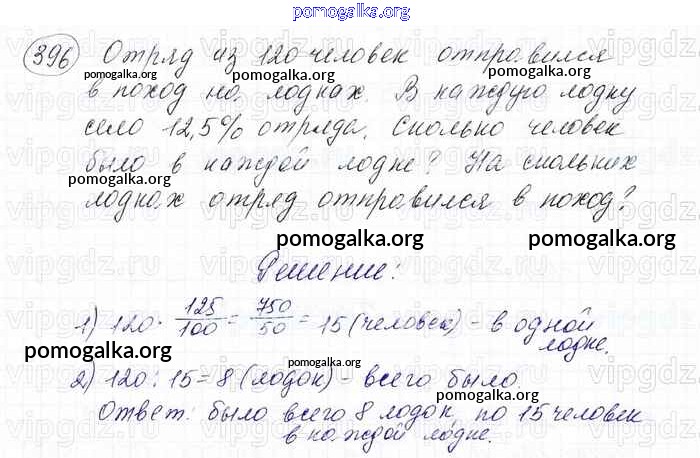 pomogalka.org
396 Отряд из 120 человек отправился
pomogalka.org pomogalka.org
в поход на лодках. В каждую лодку
село 12,5% отряда. Сколько человек
pomogalka.org pomogalka.org
было в каждой лодке? На скольких
pomogalka.org pomogalka.org
лодках отряд отправился в поход?
pomogalka.org pomogalka.org
Решение:
1) 120 · 125/100 = 750/50 = 15 (человек) - в одной
лодке.
pomogalka.org
2) 120 : 15 = 8 (лодок) - всего было.
pomogalka.org
Ответ: было всего 8 лодок, по 15 человек
в каждой лодке.
vipgdz.ru